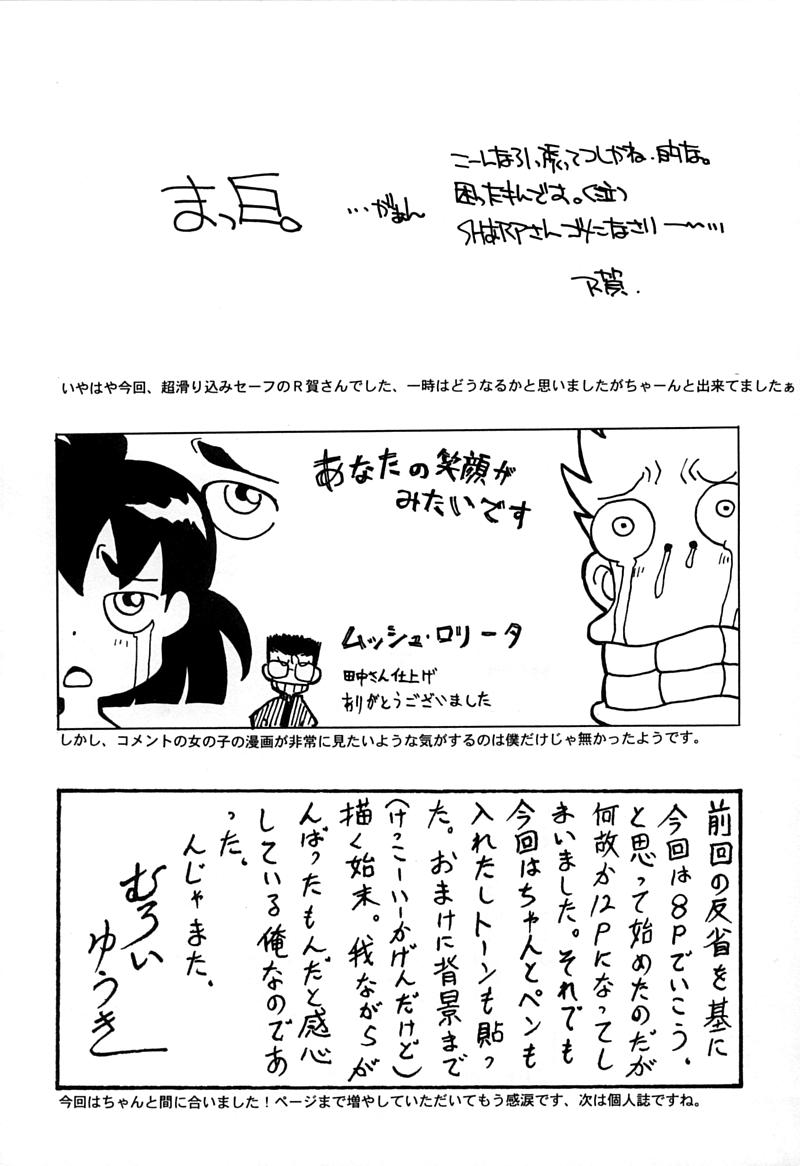 まっ白。
…がぁん
困ったもんです。(泣)
SHARPさんゴメンなさい〜〜…
R賀.
いやはや今回、超滑り込みセーフのR賀さんでした、一時はどうなるかと思いましたがちゃーんと出来てましたぁ
あなたの笑顔が
みたいです
ムッシュ・ロリータ
田中さん仕上げ
ありがとうございました
しかし、コメントの女の子の漫画が非常に見たいような気がするのは僕だけじゃ無かったようです。
前回の反省を基に
今回は8Pでいこう.
と思って始めたのだが
何故か12Pになってし
まいました。それでも
今回はちゃんとペンも
入れたしトーンも貼っ
た。おまけに背景まで
(けっこーいーかげんだけど)
描く始末。我ながらが
んばったもんだと感心
している俺なのであ
った。
んじゃまた、
むろい
ゆうき
今回はちゃんと間に合いました！ページまで増やしていただいてもう感涙です、次は個人誌ですね。